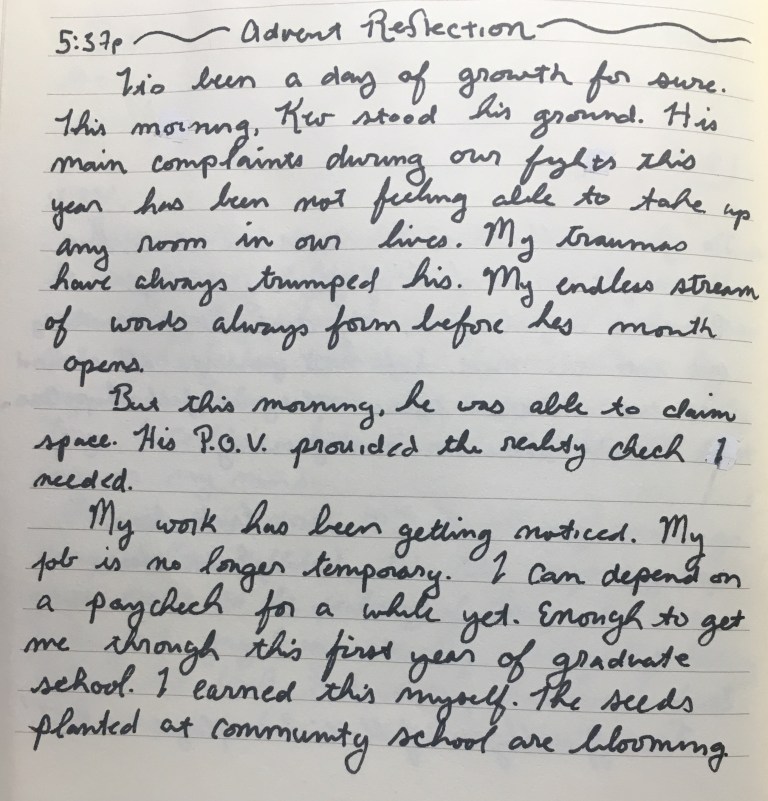 5:37p Advent Reflection
Tis been a day of growth for sure.
This morning, Kev stood his ground. His
main complaints during our fights this
year has been not feeling able to take up
any room in our lives. My traumas
have always trumped his. My endless stream
of words always form before his mouth
opens.
But this morning, he was able to claim
space. His P.O.V. provided the reality check I
needed.
My work has been getting noticed. My
job is no longer temporary. I can depend on
a paycheck for a while yet. Enough to get
me through this first year of graduate
school. I earned this myself. The seeds
planted at community school are blooming.